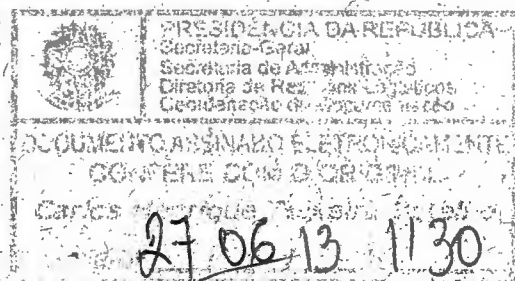 PRESIDÊNCIA DA REPÚBLICA
Secretaria-Geral
Secretaria de Administração
Diretoria de Recursos Logísticos
Coordenação de
DOCUMENTO ASSINADO ELETRONICAMENTE
CONFERE COM O ORIGINAL
Carlos Henrique
27 06 13 1130